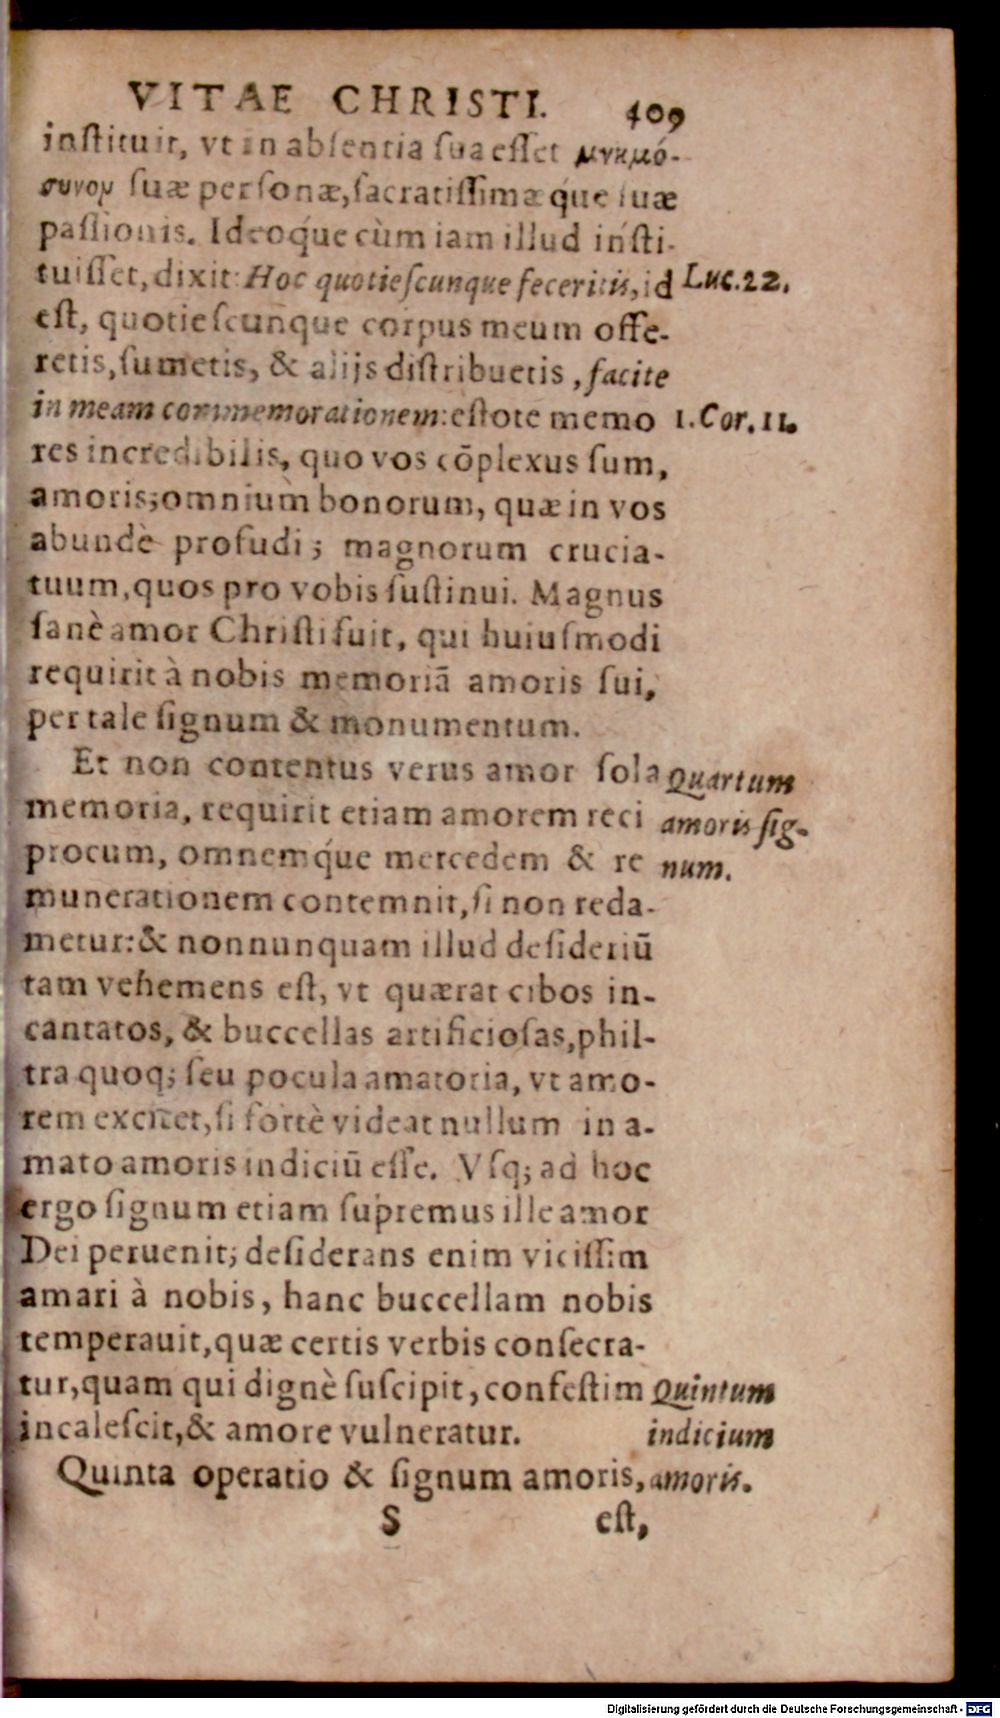 VITAE CHRISTI. 409
inſtituit, vt in abſentia ſua eſſet μνημό-
συνον ſuæ perſonæ, ſacratiſſimæq́ue ſuæ
paſſionis. Ideoq́ue cùm iam illud inſti-
tuiſſet, dixit: Hoc quotieſcunque feceritis, id Luc. 22.
eſt, quotieſcunque corpus meum offe-
retis, ſumetis, & alijs diſtribuetis, facite
in meam commemorationem: eſtote memo 1. Cor. 11.
res incredibilis, quo vos cōplexus ſum,
amoris; omnium bonorum, quæ in vos
abundè profudi; magnorum crucia-
tuum, quos pro vobis ſuſtinui. Magnus
ſanè amor Chriſti fuit, qui huiuſmodi
requirit à nobis memoriā amoris ſui,
per tale ſignum & monumentum.
Et non contentus verus amor ſola Quartum
memoria, requirit etiam amorem reci amoris ſig-
procum, omnemq́ue mercedem & re num.
munerationem contemnit, ſi non reda-
metur: & nonnunquam illud deſideriū
tam vehemens eſt, vt quærat cibos in-
cantatos, & buccellas artificioſas, phil-
tra quoq; ſeu pocula amatoria, vt amo-
rem excitet, ſi fortè videat nullum in a-
mato amoris indiciū eſſe. Vſq; ad hoc
ergo ſignum etiam ſupremus ille amor
Dei peruenit; deſiderans enim viciſſim
amari à nobis, hanc buccellam nobis
temperauit, quæ certis verbis conſecra-
tur, quam qui dignè ſuſcipit, confeſtim Quintum
incaleſcit, & amore vulneratur. indicium
Quinta operatio & ſignum amoris, amoris.
S eſt,
Digitalisierung gefördert durch die Deutsche Forschungsgemeinschaft - DFG